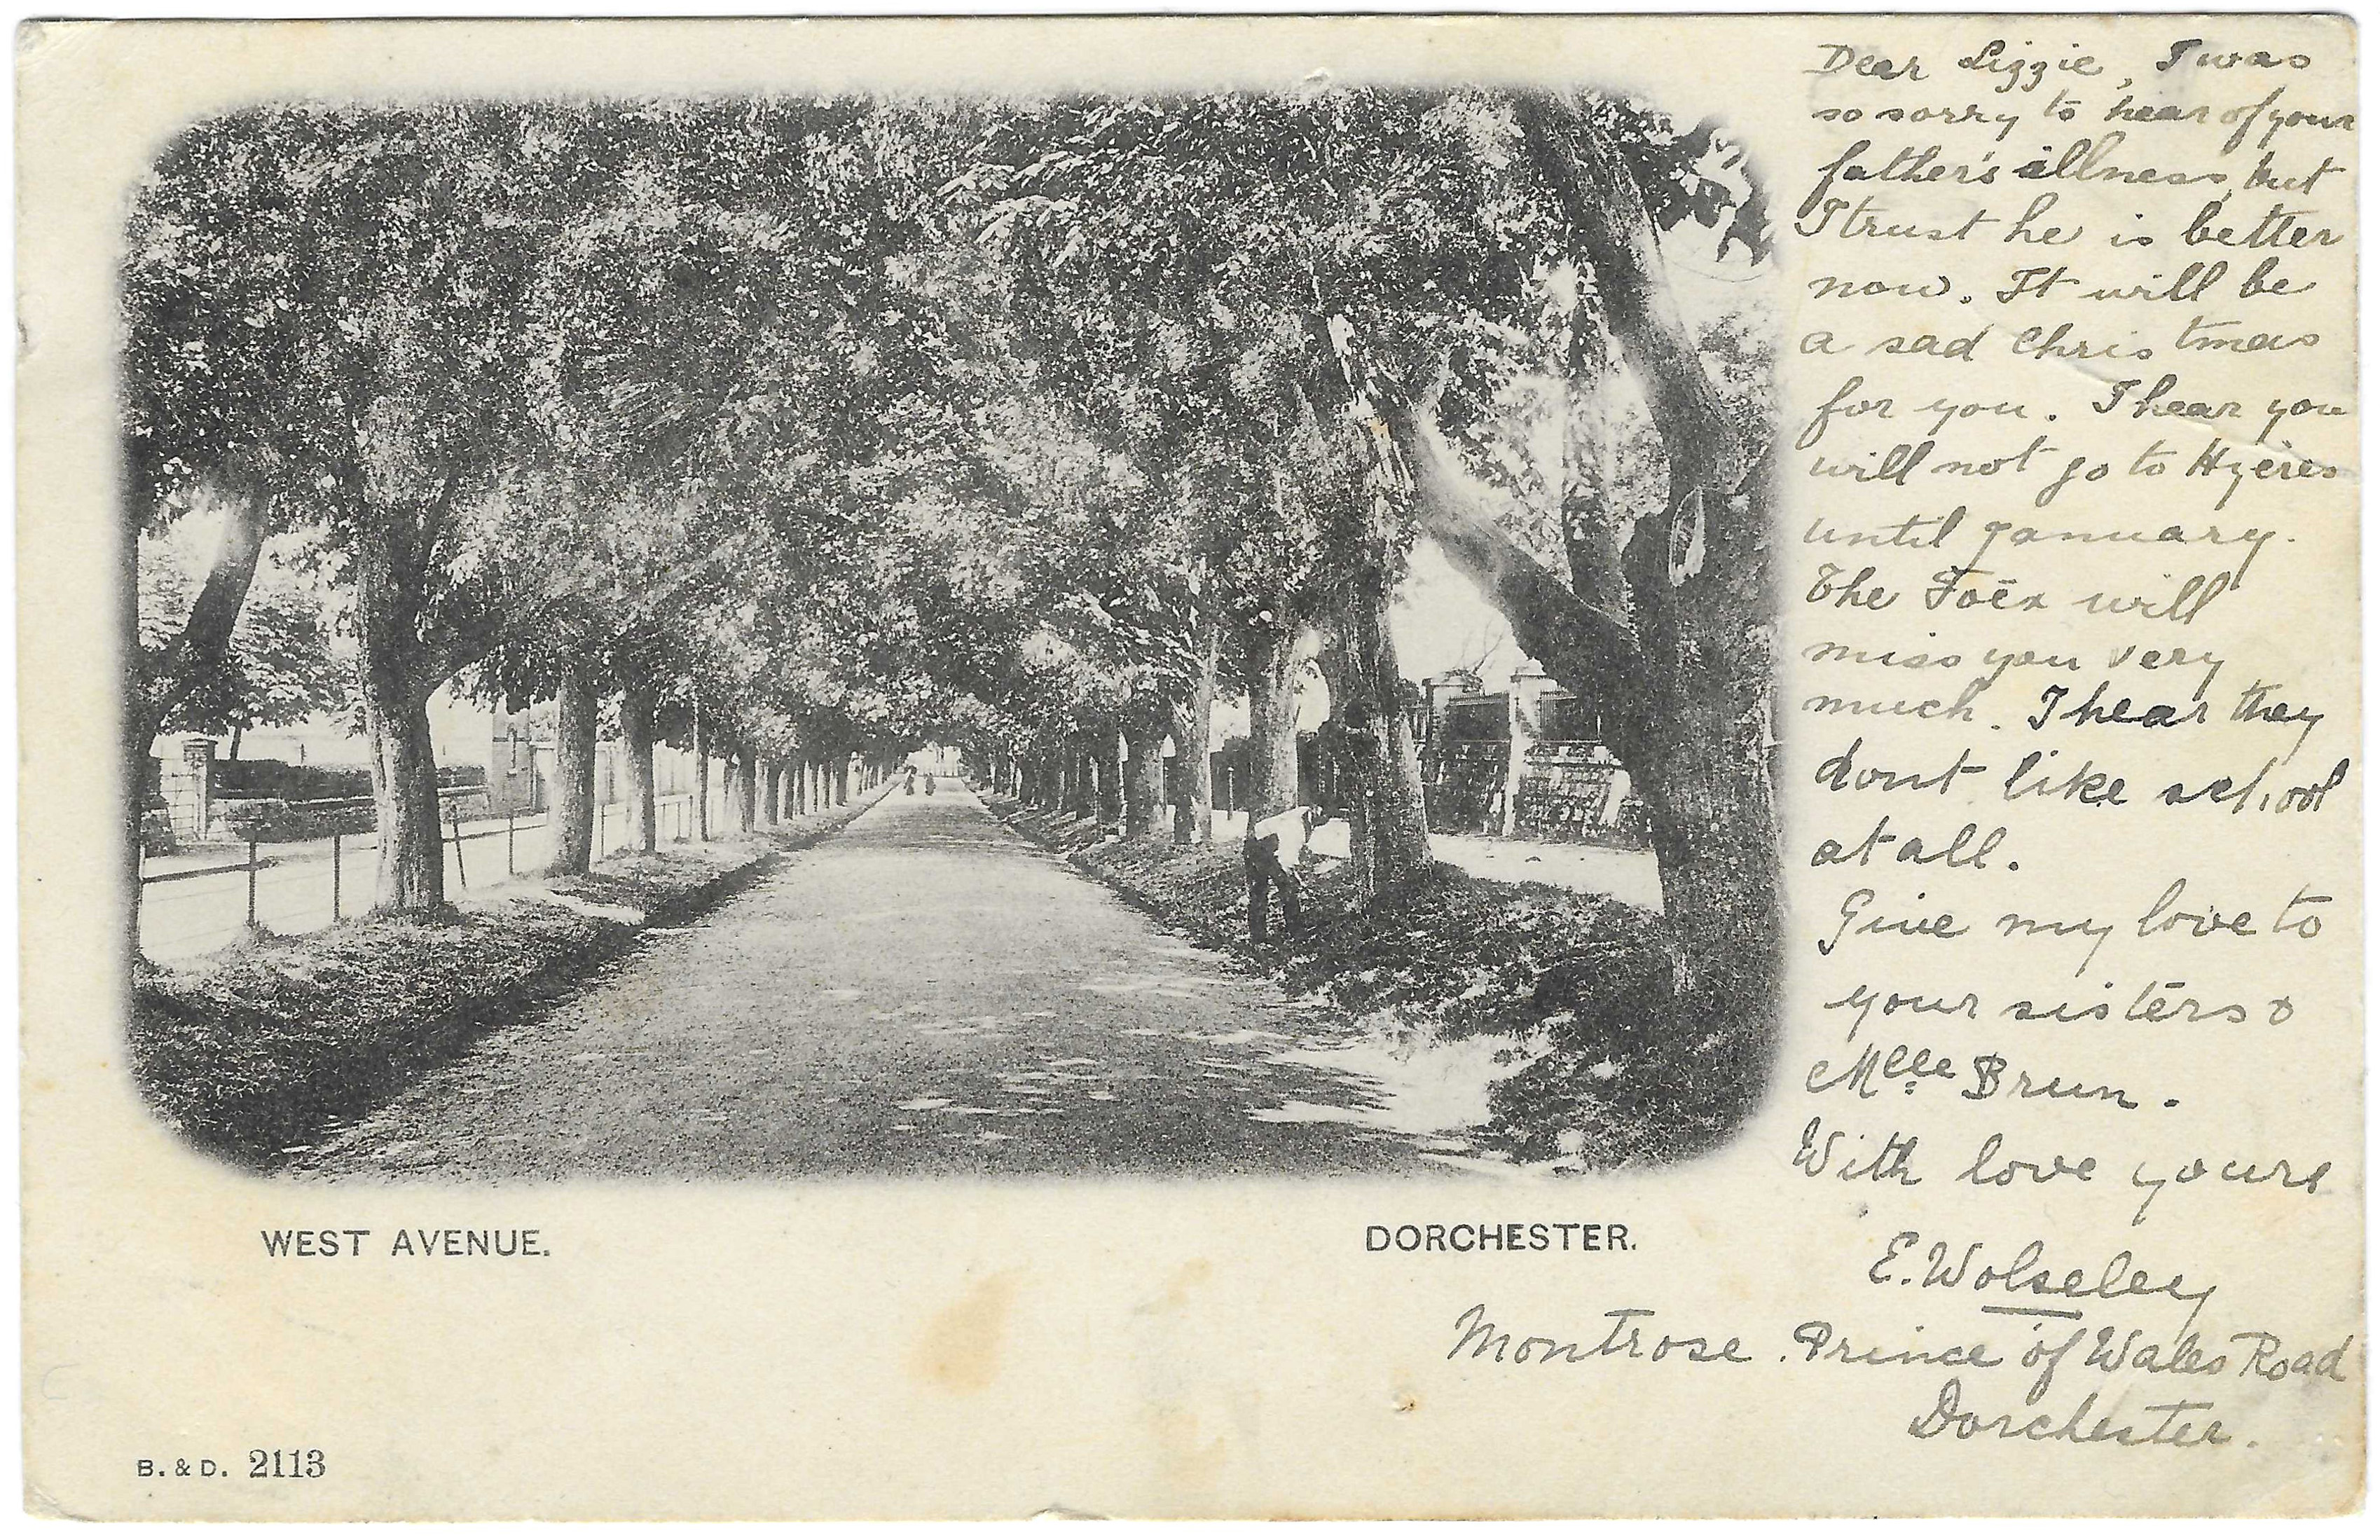 Dear Lizzie, I was
so sorry to hear of your
father's illness, but
I trust he is better
now. It will be
a sad Christmas
for you. I hear you
will not go to Hyères
until January.
The will
miss you very
much. I hear they
dont like school
at all.
Give my love to
your sisters &
Mlle Brun.
With love yours
E. Wolseley
Montrose. Prince of Wales Road
Dorchester.
WEST AVENUE. DORCHESTER.
B. & D. 2113